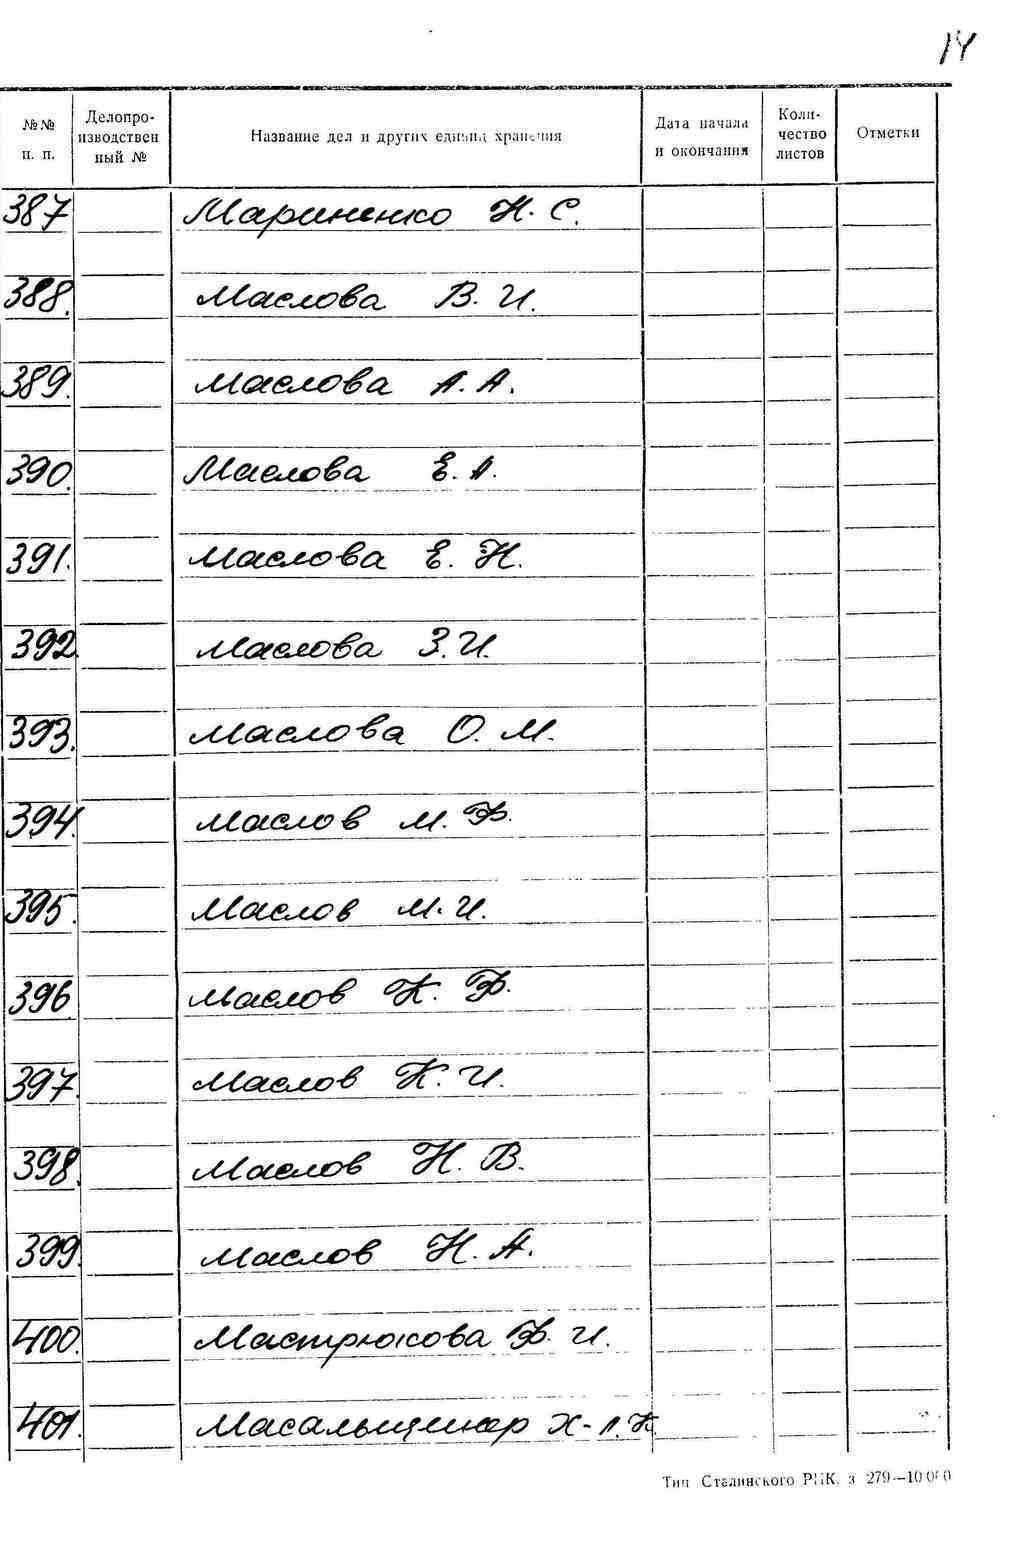 14
№№ п. п. Делопро-изводствен ный № Название дел и других единиц хранения Дата начала и окончания Коли-чество листов Отметки
387 Мариненко Н. С.
388. Маслова В. И.
389. Маслова А. А.
390. Маслова Е. А.
391. Маслова Е. Н.
392. Маслова З. И.
393. Маслова О. М.
394. Маслов М. Ф.
395. Маслов М. И.
396 Маслов К. Ф.
397. Маслов К. И.
398. Маслов Н. В.
399. Маслов Н. А.
400. Мастрюкова Ф. И.
401. Х-Л. К.
Тип Сталинского РПК. з 279—10 000